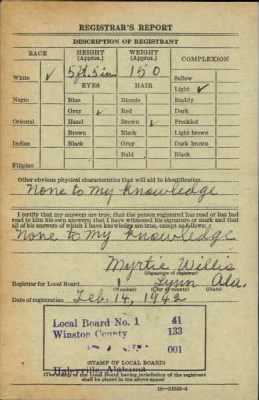 REGISTRAR'S REPORT
DESCRIPTION OF REGISTRANT
RACE HEIGHT (Approx.) WEIGHT (Approx.) COMPLEXION
White ✓ 5 ft. 5 in. 150 Sallow
EYES HAIR Light ✓
Negro Blue Blonde Ruddy
Gray ✓ Red Dark
Oriental Hazel Brown ✓ Freckled
Brown Black Light brown
Indian Black Gray Dark brown
Bald Black
Filipino
Other obvious physical characteristics that will aid in identification
None to my knowledge
I certify that my answers are true; that the person registered has read or has had read to him his own answers; that I have witnessed his signature or mark and that all of his answers of which I have knowledge are true, except as follows:
None to my knowledge
Myrtie Willis
(Signature of registrar)
Registrar for Local Board 1 Lynn Ala.
(Number) (City or county) (State)
Date of registration Feb. 14, 1942
Local Board No. 1 41
Winston County 133
001
Haleyville, Alabama
(STAMP OF LOCAL BOARD)
(The stamp of the Local Board having jurisdiction of the registrant shall be placed in the above space)